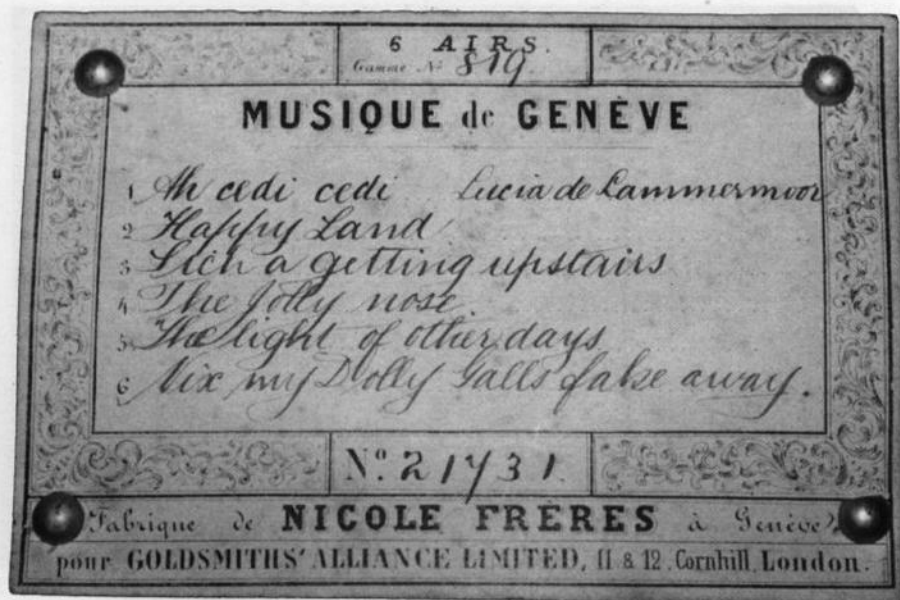 6 AIRS.
Gamme No 819
MUSIQUE de GENÈVE
1 Ah cedi cedi Lucia de Lammermoor
2 Happy Land
3 Sich a getting upstairs
4 The Jolly nose
5 The light of other days
6 Nix my Dolly Galls fake away.
No. 21731
Fabrique de NICOLE FRÈRES à Genève
pour GOLDSMITHS' ALLIANCE LIMITED, 11 & 12, Cornhill, London.